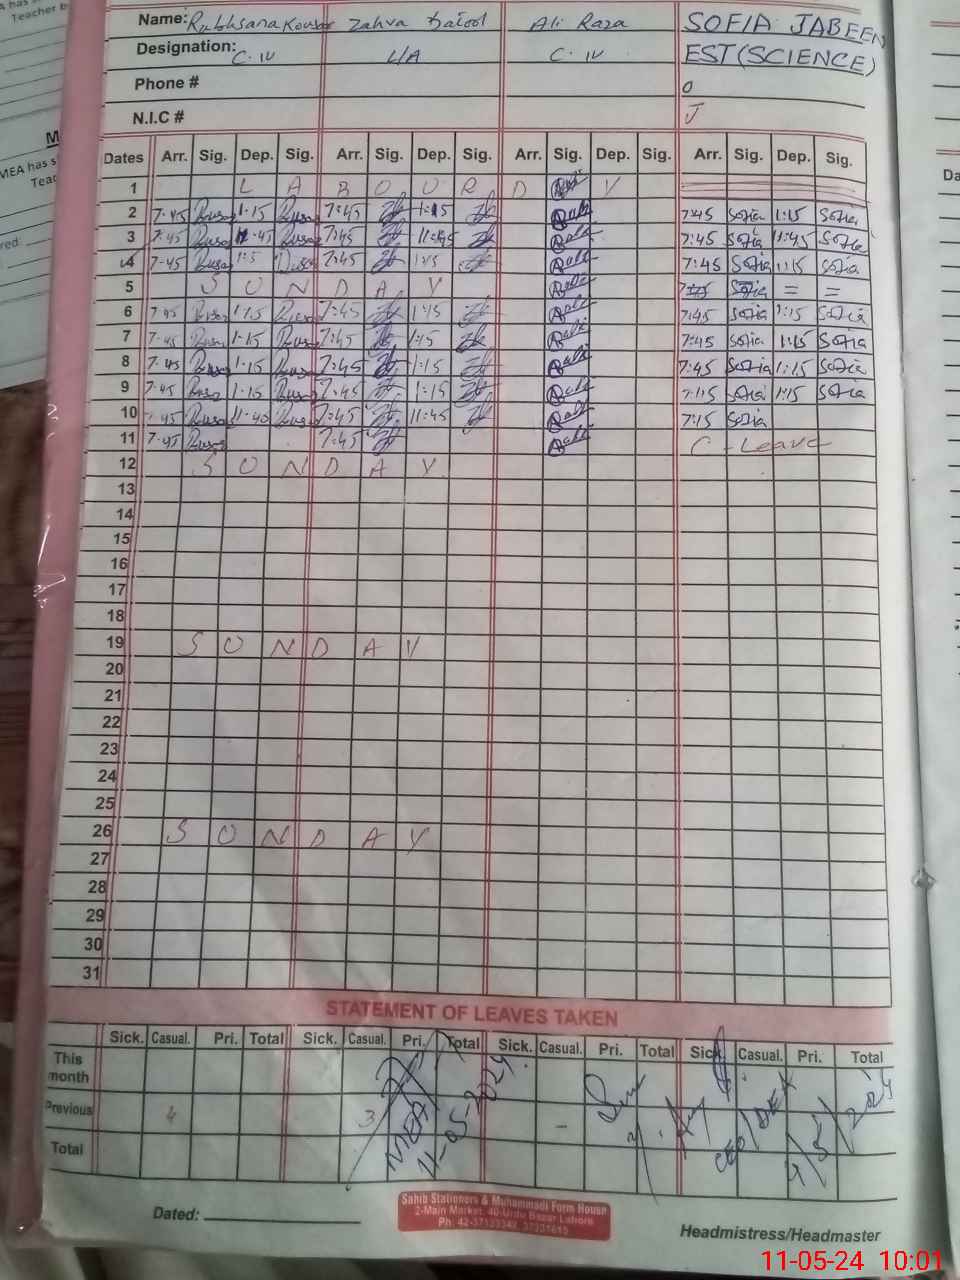 Name: Rukhsana Kousar Zahra Batool Ali Raza SOFIA JABEEN
Designation: C.IV L/A C.IV EST (SCIENCE)
Phone #
N.I.C #
Dates Arr. Sig. Dep. Sig. Arr. Sig. Dep. Sig. Arr. Sig. Dep. Sig. Arr. Sig. Dep. Sig.
1 L A B O U R D A Y
2 7:45 1:15 7:45 1:15 7:45 Sofia 1:15 Sofia
3 7:45 11:45 7:45 11:45 7:45 Sofia 11:45 Sofia
4 7:45 1:15 7:45 1:15 7:45 Sofia 1:15 Sofia
5 S U N D A Y Sofia = =
6 7:45 1:15 7:45 1:15 7:45 Sofia 1:15 Sofia
7 7:45 1:15 7:45 1:15 7:45 Sofia 1:15 Sofia
8 7:45 1:15 7:45 1:15 7:45 Sofia 1:15 Sofia
9 7:45 1:15 7:45 1:15 7:15 Sofia 1:15 Sofia
10 7:45 11:45 7:45 11:45 7:15 Sofia
11 7:45 7:45 C-Leave
12 S U N D A Y
13
14
15
16
17
18
19 S U N D A Y
20
21
22
23
24
25
26 S U N D A Y
27
28
29
30
31
STATEMENT OF LEAVES TAKEN
Sick. Casual. Pri. Total Sick. Casual. Pri. Total Sick. Casual. Pri. Total Sick. Casual. Pri. Total
This month
Previous 4 3 -
Total
MEA
11-05-2024
CEO/DEA
Dated:
Sahib Stationers & Muhammadi Form House
2-Main Market, 40-Urdu Bazar Lahore
Headmistress/Headmaster
11-05-24 10:01